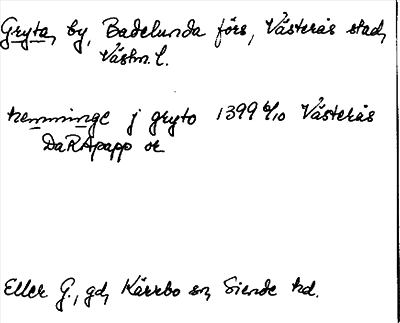 Gryta, by, Badelunda förs, Västerås stad,
Västm. l.
hemminge j gryto 1399 6/10 Västerås
DaRApapp or
Eller G., gd, Kärrbo sn, Siende hd.